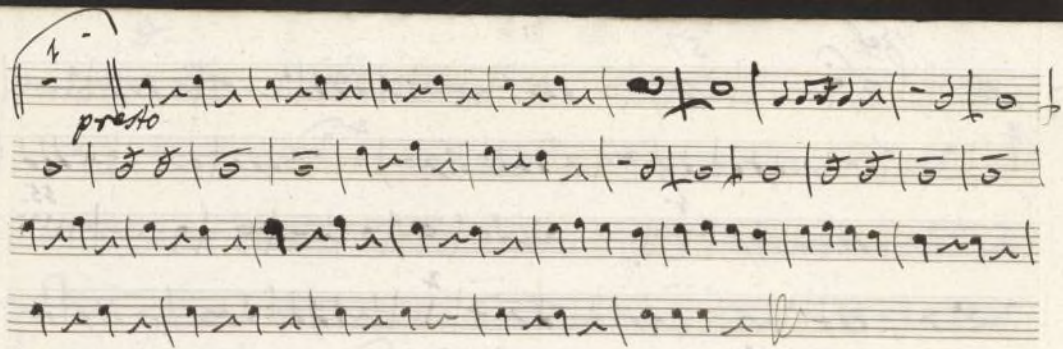 1
presto